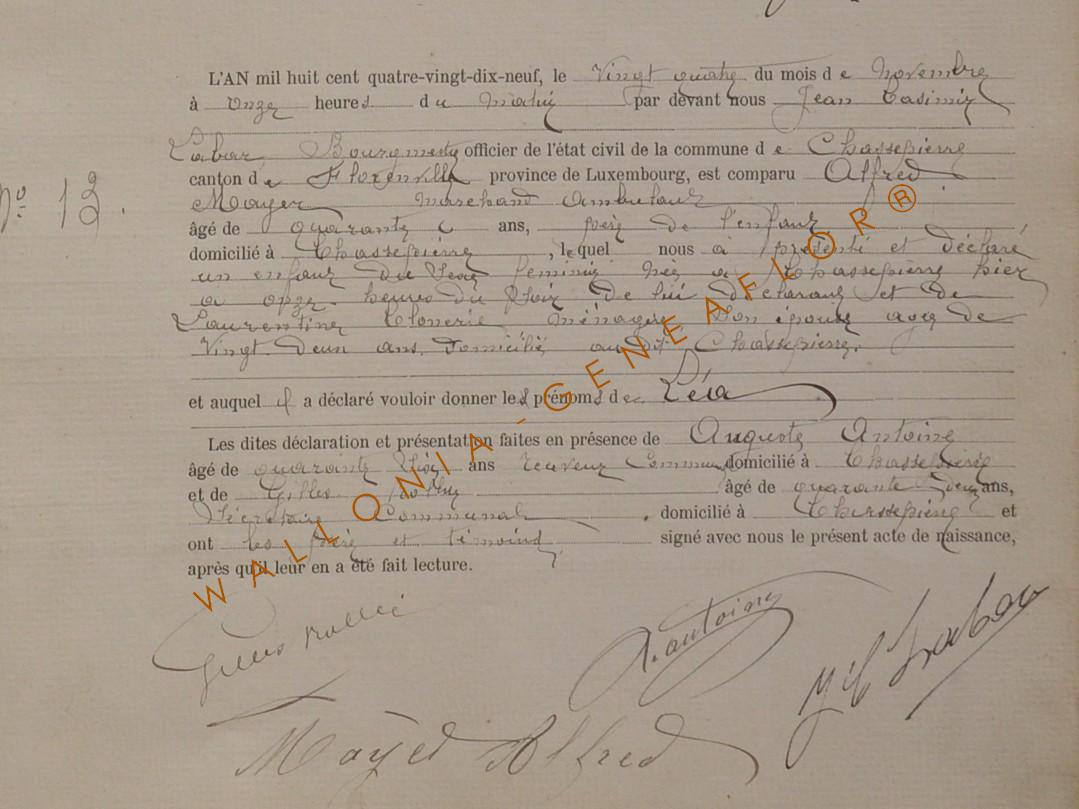 L'AN mil huit cent quatre-vingt-dix-neuf, le Vingt quatre du mois de Novembre
à onze heures du matin par devant nous Jean Casimir
Labar, Bourgmestre officier de l'état civil de la commune de Chassepierre
canton de Florenville province de Luxembourg, est comparu Alfred
Mayer marchand ambulant
âgé de quarante ans, père de l'enfant
domicilié à Chassepierre, lequel nous a présenté et déclaré
un enfant du sexe féminin née à Chassepierre hier
a onze heures du soir de lui déclarant et de
Laurentine ménagère son épouse agée de
Vingt deux ans, domicilié audit Chassepierre.
et auquel il a déclaré vouloir donner les prénoms de Léa
Les dites déclaration et présentation faites en présence de Auguste Antoine
âgé de quarante ans domicilié à Chassepierre
et de Gilles âgé de quarante deux ans,
Secrétaire Communal, domicilié à Chassepierre et
ont les père et témoins signé avec nous le présent acte de naissance,
après qu'il leur en a été fait lecture.
N° 13.
WALLONIA-GENEAFLOR®
Gilles
A. Antoine
Labar
Mayer Alfred